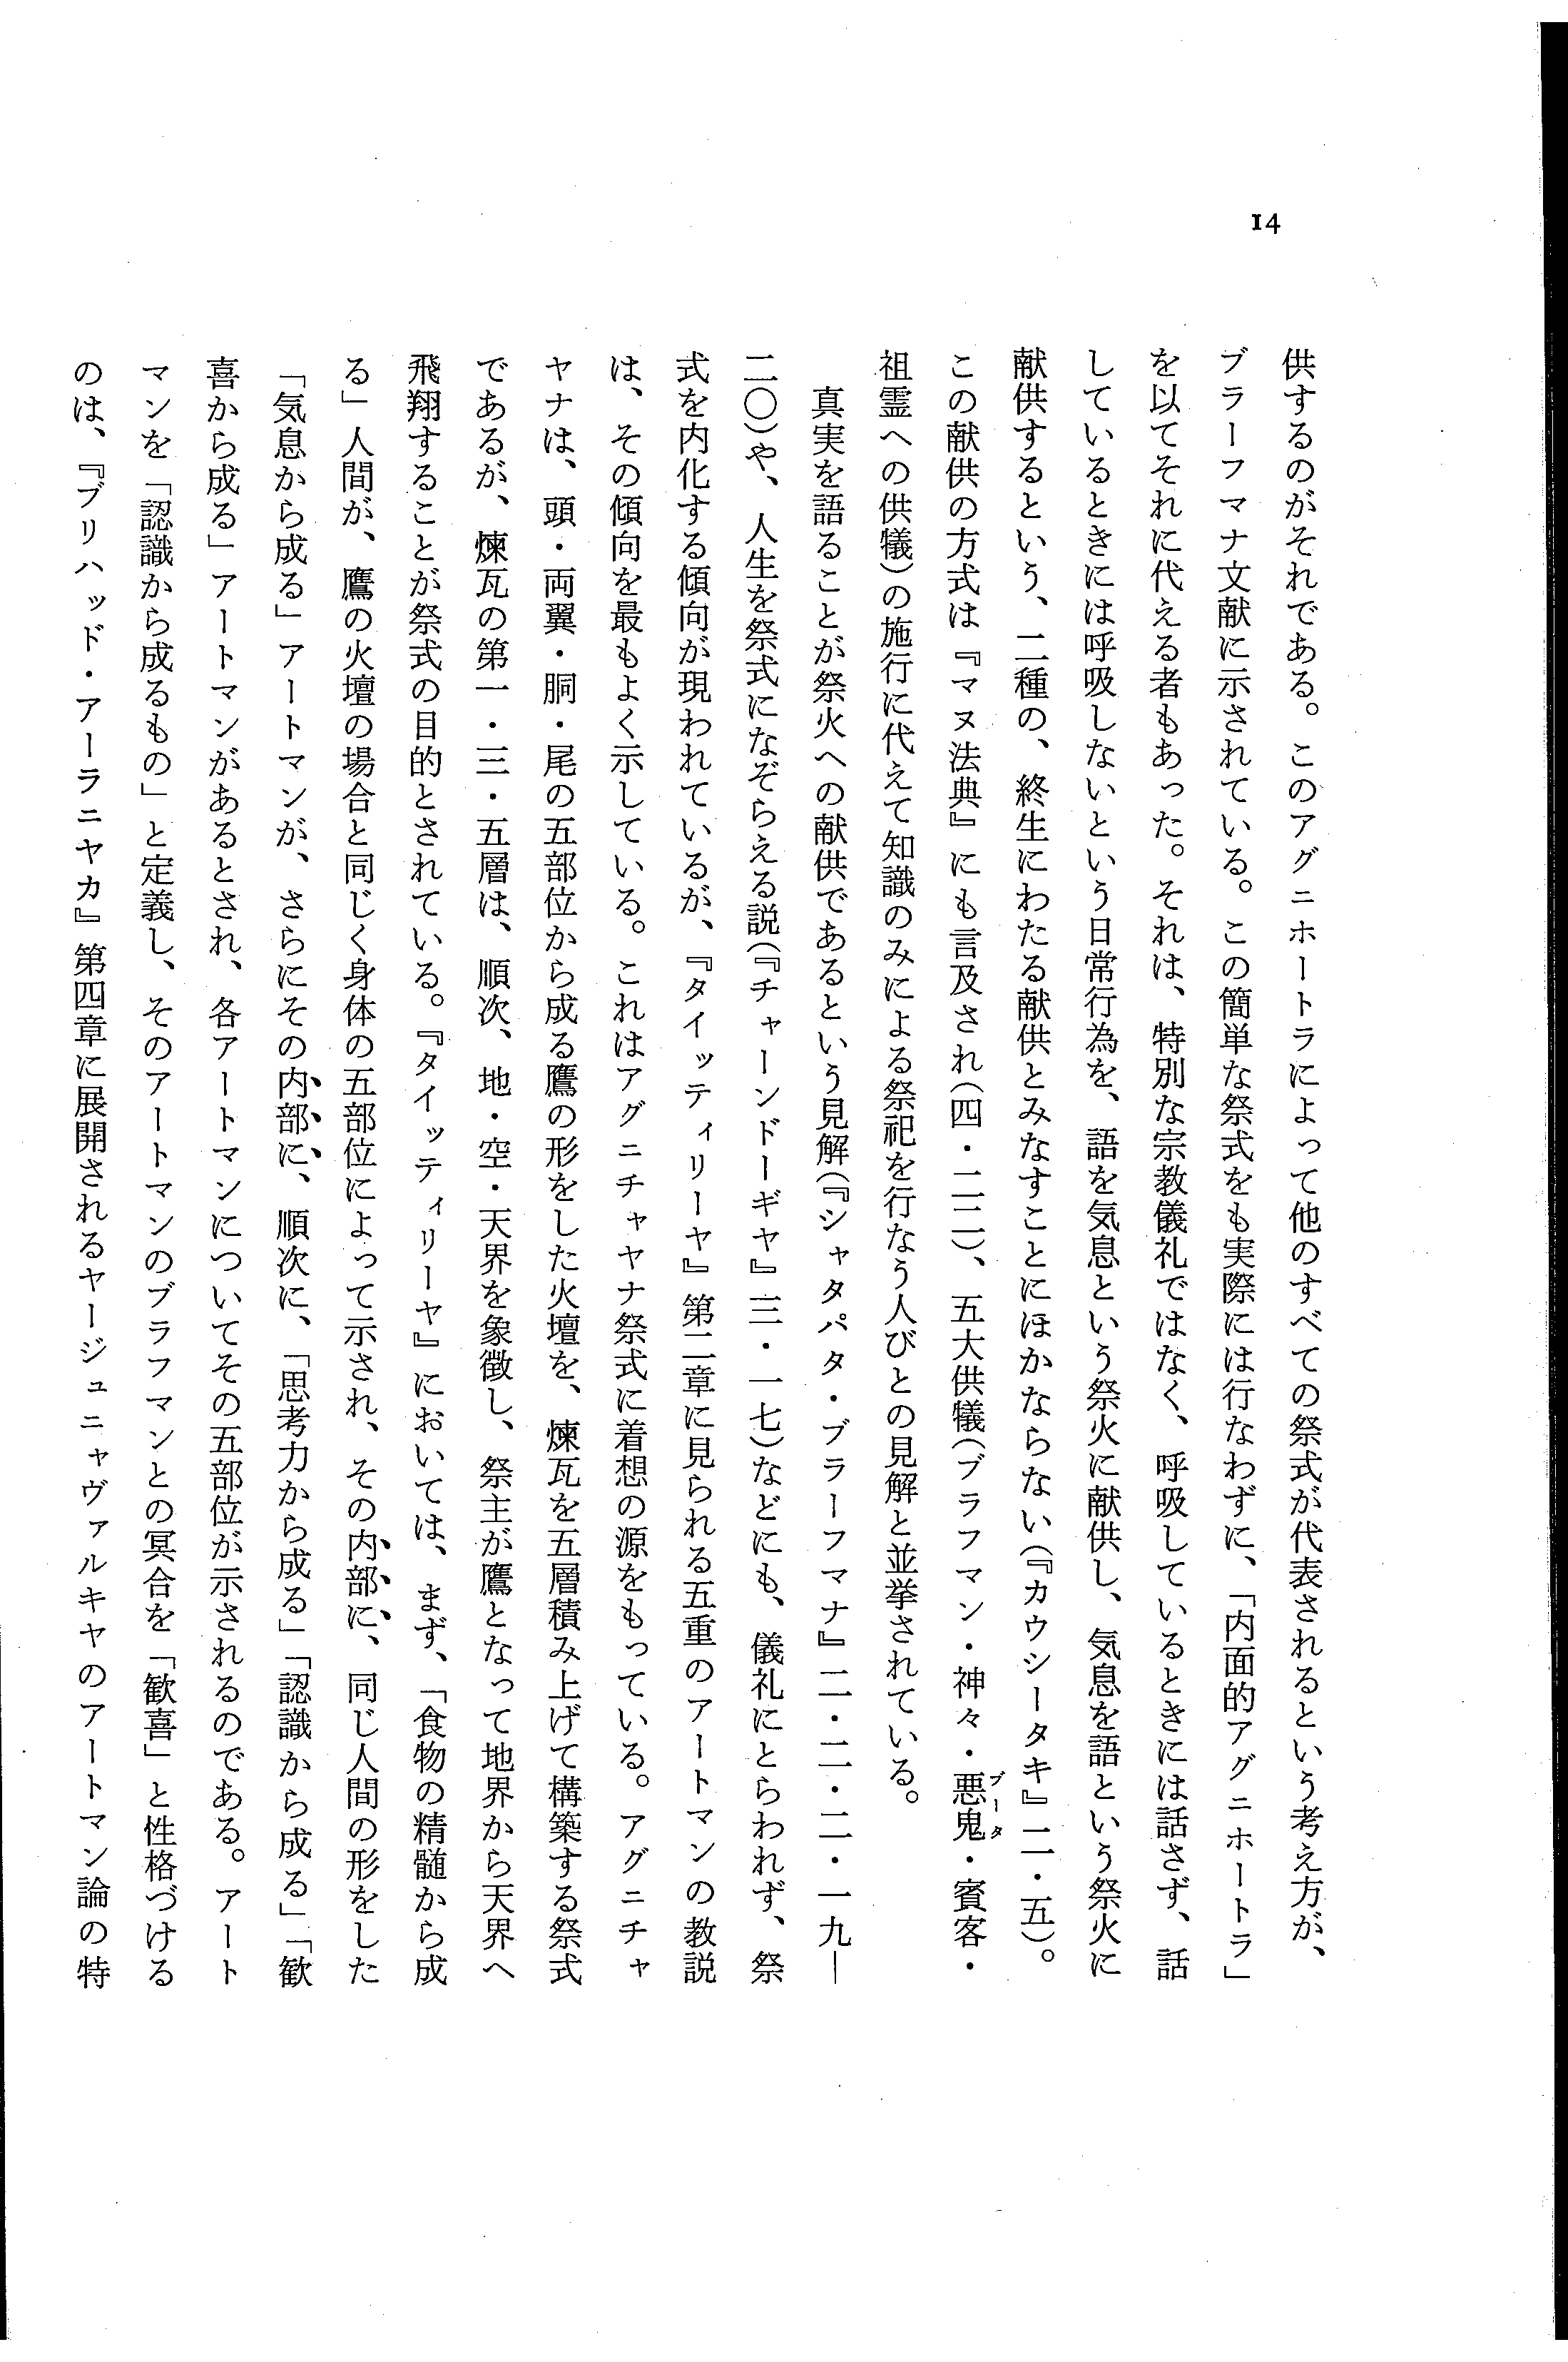 14
供するのがそれである。このアグニホートラによって他のすべての祭式が代表されるという考え方が、
ブラーフマナ文献に示されている。この簡単な祭式をも実際には行なわずに、「内面的アグニホートラ」
を以てそれに代える者もあった。それは、特別な宗教儀礼ではなく、呼吸しているときには話さず、話
しているときには呼吸しないという日常行為を、語を気息という祭火に献供し、気息を語という祭火に
献供するという、二種の、終生にわたる献供とみなすことにほかならない（『カウシータキ』二・五）。
この献供の方式は『マヌ法典』にも言及され（四・二二）、五大供犠（ブラフマン・神々・悪鬼ブータ・賓客・
祖霊への供犠）の施行に代えて知識のみによる祭祀を行なう人びとの見解と並挙されている。
　真実を語ることが祭火への献供であるという見解（『シャタパタ・ブラーフマナ』二・二・二・一九—
二〇）や、人生を祭式になぞらえる説（『チャーンドーギヤ』三・一七）などにも、儀礼にとらわれず、祭
式を内化する傾向が現われているが、『タイッティリーヤ』第二章に見られる五重のアートマンの教説
は、その傾向を最もよく示している。これはアグニチャヤナ祭式に着想の源をもっている。アグニチャ
ヤナは、頭・両翼・胴・尾の五部位から成る鷹の形をした火壇を、煉瓦を五層積み上げて構築する祭式
であるが、煉瓦の第一・三・五層は、順次、地・空・天界を象徴し、祭主が鷹となって地界から天界へ
飛翔することが祭式の目的とされている。『タイッティリーヤ』においては、まず、「食物の精髄から成
る」人間が、鷹の火壇の場合と同じく身体の五部位によって示され、その内部に、同じ人間の形をした
「気息から成る」アートマンが、さらにその内部に、順次に、「思考力から成る」「認識から成る」「歓
喜から成る」アートマンがあるとされ、各アートマンについてその五部位が示されるのである。アート
マンを「認識から成るもの」と定義し、そのアートマンのブラフマンとの冥合を「歓喜」と性格づける
のは、『ブリハッド・アーラニヤカ』第四章に展開されるヤージュニャヴァルキヤのアートマン論の特